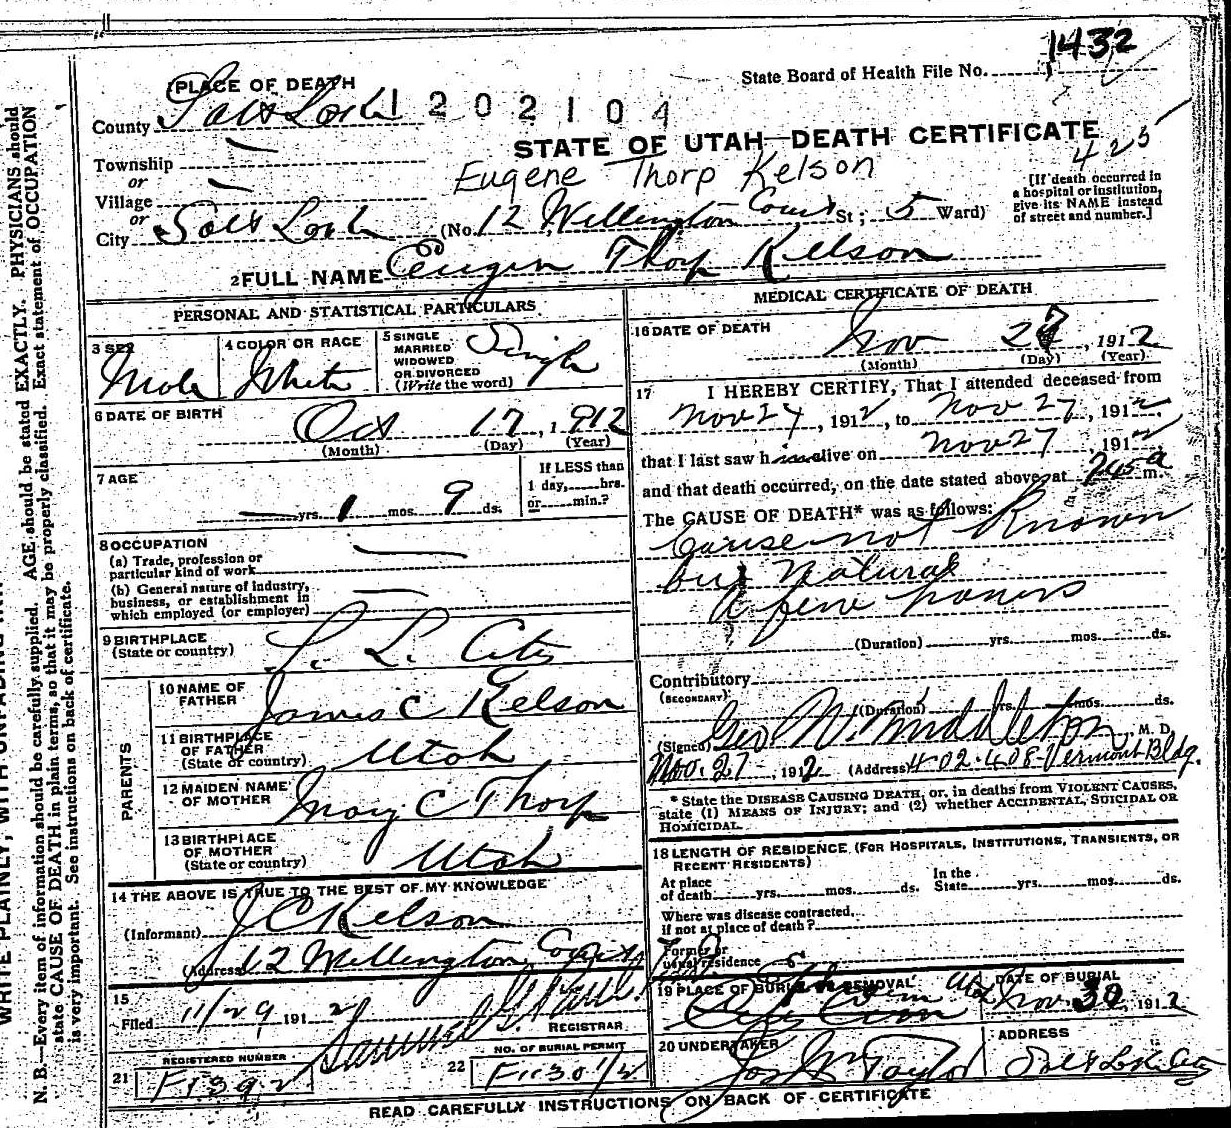 1432
State Board of Health File No.
PLACE OF DEATH
County Salt Lake 1202104
STATE OF UTAH—DEATH CERTIFICATE
425
Township —
or
Village —
or
City Salt Lake
Eugene Thorp Kelson
(No. 12 Wellington Court St; 5 Ward)
[If death occurred in a hospital or institution, give its NAME instead of street and number.]
2 FULL NAME Eugene Thorp Kelson
PERSONAL AND STATISTICAL PARTICULARS
3 SEX Male
4 COLOR OR RACE White
5 SINGLE MARRIED WIDOWED OR DIVORCED (Write the word) Single
6 DATE OF BIRTH Oct 17, 1912
(Month) (Day) (Year)
7 AGE — yrs. 1 mos. 9 ds.
If LESS than 1 day, hrs. or min.?
8 OCCUPATION
(a) Trade, profession or particular kind of work —
(b) General nature of industry, business, or establishment in which employed (or employer) —
9 BIRTHPLACE (State or country) S. L. City
PARENTS
10 NAME OF FATHER James C Kelson
11 BIRTHPLACE OF FATHER (State or country) Utah
12 MAIDEN NAME OF MOTHER Mary C Thorp
13 BIRTHPLACE OF MOTHER (State or country) Utah
14 THE ABOVE IS TRUE TO THE BEST OF MY KNOWLEDGE
(Informant) J C Kelson
(Address) 12 Wellington Court
15 Filed 11/29 191 2
REGISTRAR
REGISTERED NUMBER
21
NO. OF BURIAL PERMIT
22
MEDICAL CERTIFICATE OF DEATH
16 DATE OF DEATH Nov 27, 1912
(Month) (Day) (Year)
17 I HEREBY CERTIFY, That I attended deceased from
Nov 24, 1912, to Nov 27, 1912,
that I last saw h im alive on Nov 27 1912
and that death occurred, on the date stated above, at 245 a m.
The CAUSE OF DEATH* was as follows:
Cause not Known
but Natural
(Duration) yrs. mos. ds.
Contributory
(SECONDARY)
(Duration) yrs. mos. ds.
(Signed) Geo W. Middleton, M. D.
Nov. 27, 1912 (Address) 402-408-Vermont Bldg.
* State the DISEASE CAUSING DEATH, or, in deaths from VIOLENT CAUSES, state (1) MEANS OF INJURY; and (2) whether ACCIDENTAL, SUICIDAL OR HOMICIDAL.
18 LENGTH OF RESIDENCE (FOR HOSPITALS, INSTITUTIONS, TRANSIENTS, OR RECENT RESIDENTS)
At place of death yrs. mos. ds. In the State yrs. mos. ds.
Where was disease contracted, if not at place of death?
Former or usual residence
19 PLACE OF BURIAL OR REMOVAL
DATE OF BURIAL Nov. 30, 1912
20 UNDERTAKER Jos Wm Taylor
ADDRESS Salt Lake City
READ CAREFULLY INSTRUCTIONS ON BACK OF CERTIFICATE
N. B.—Every item of information should be carefully supplied. AGE should be stated EXACTLY. PHYSICIANS should
state CAUSE OF DEATH in plain terms, so that it may be properly classified. Exact statement of OCCUPATION
is very important. See instructions on back of certificate.